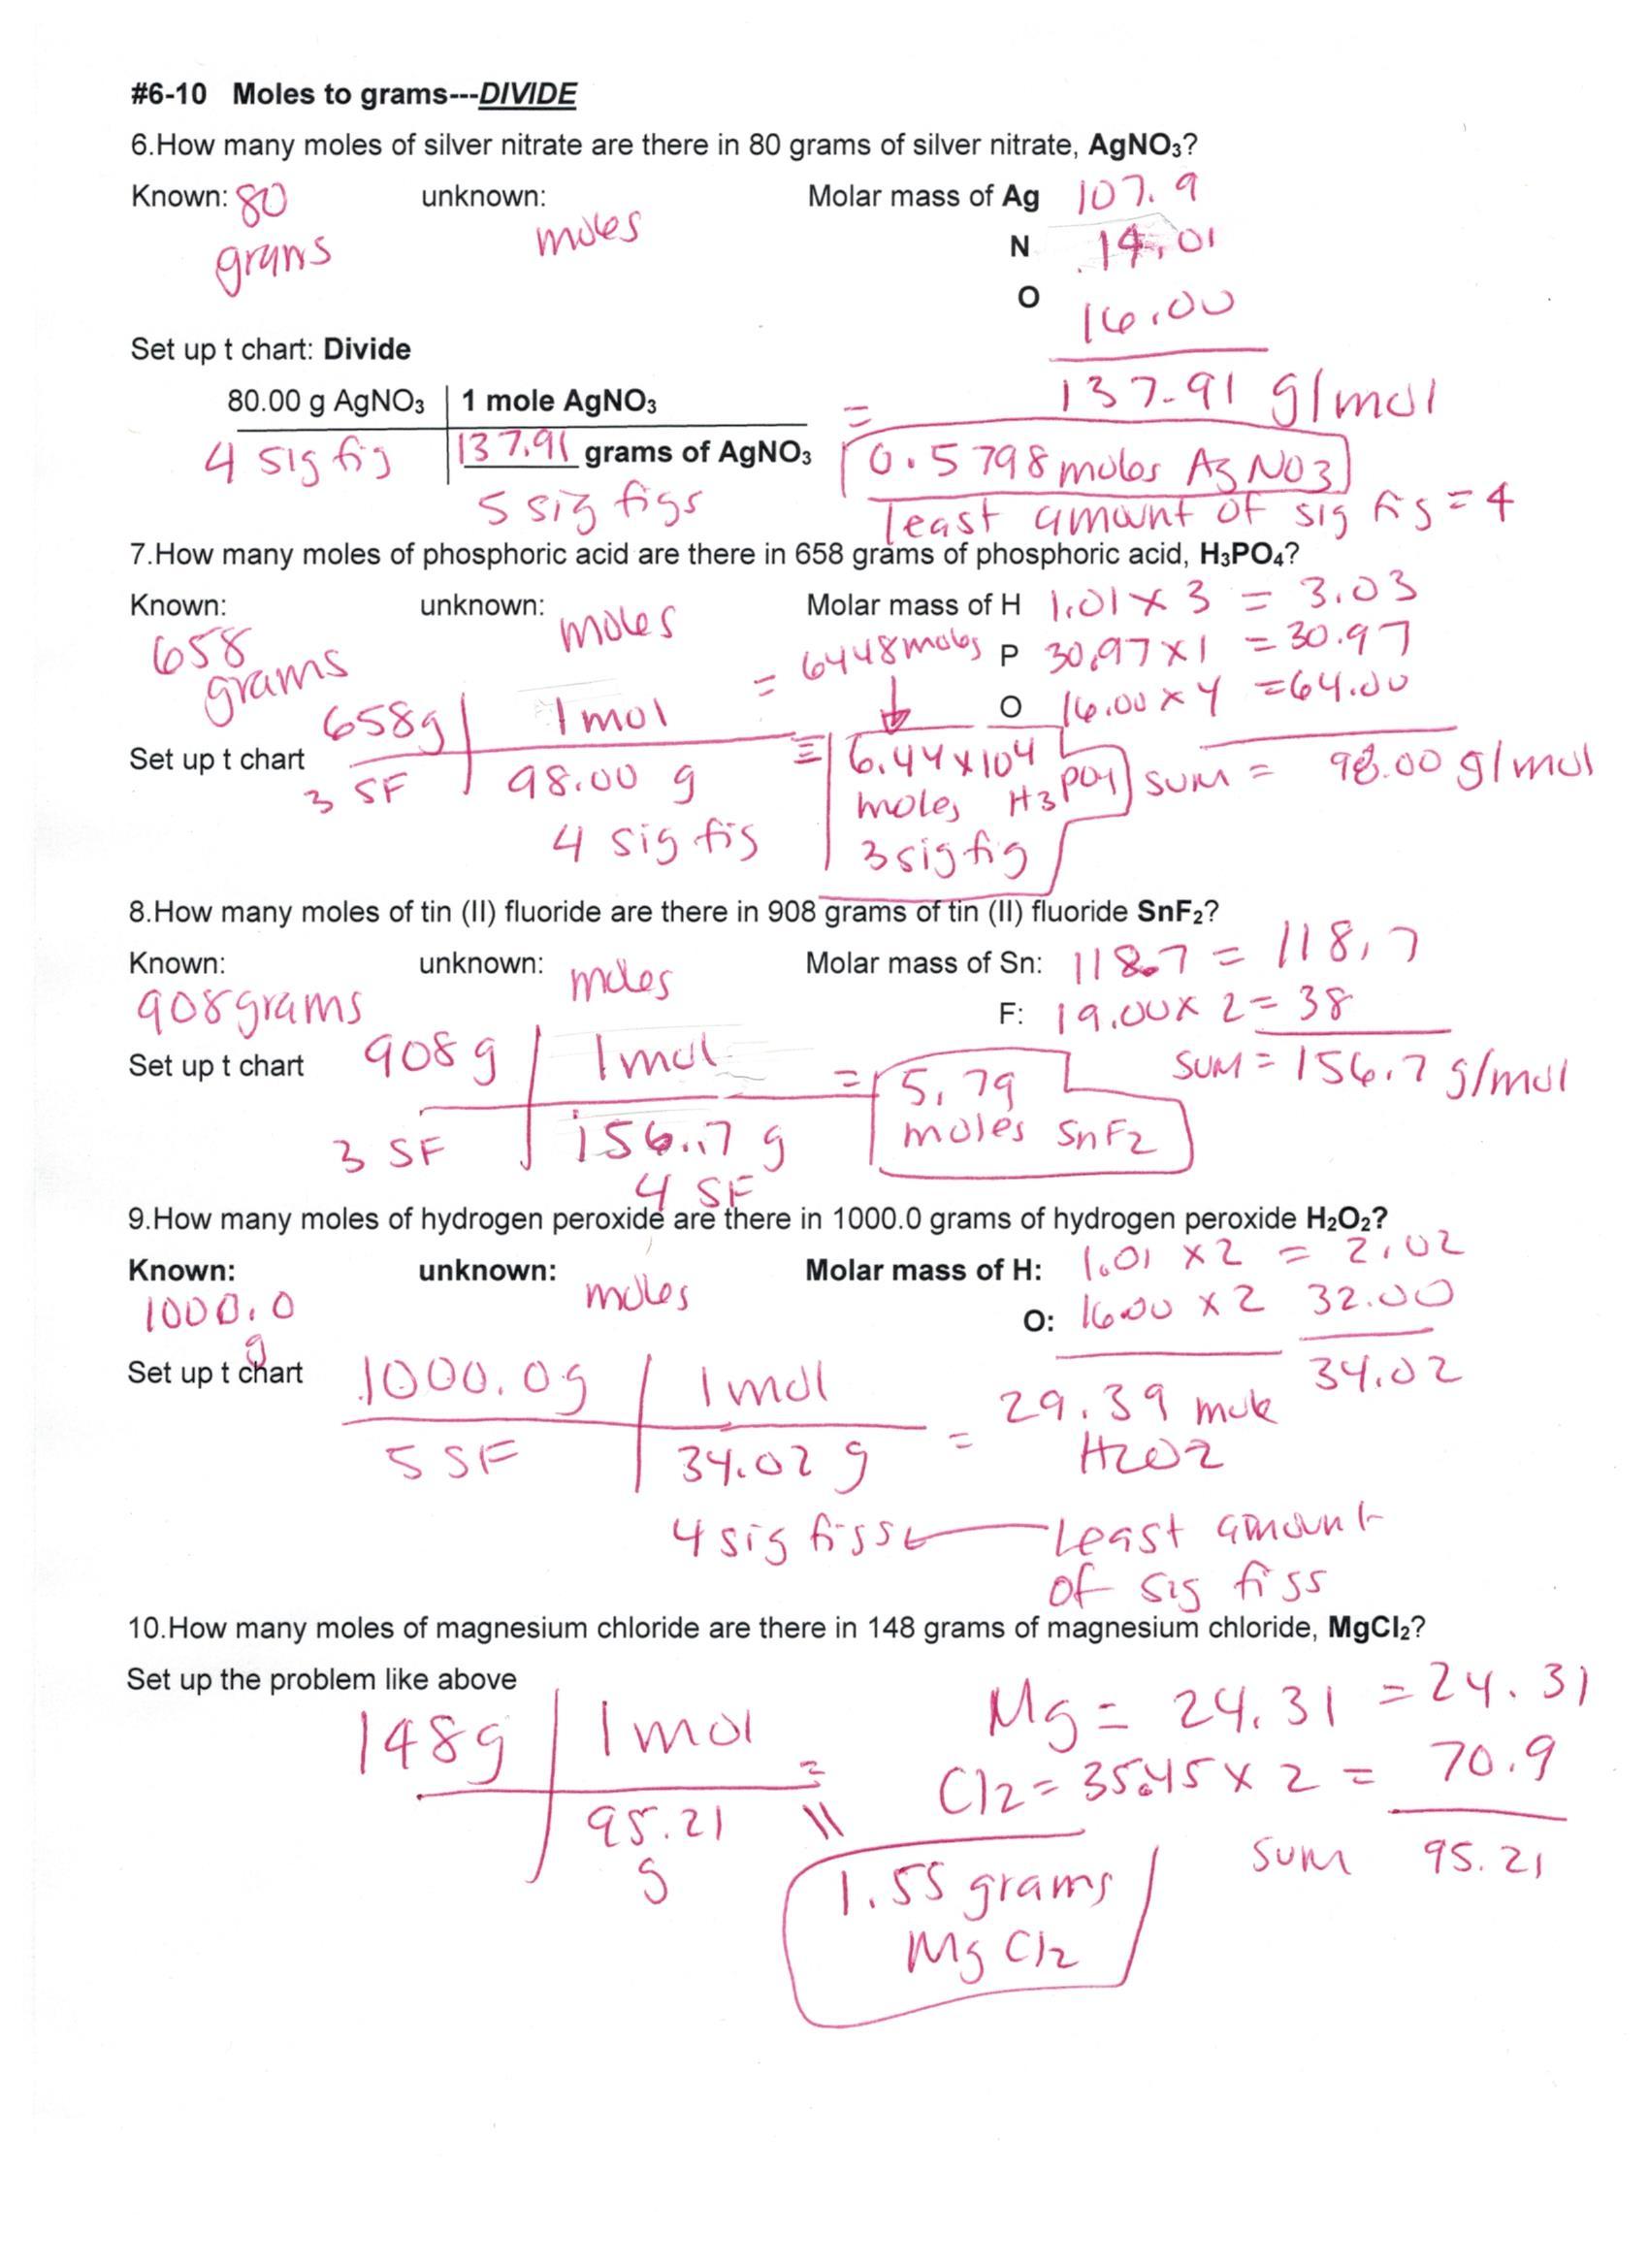 #6-10 Moles to grams---DIVIDE
6.How many moles of silver nitrate are there in 80 grams of silver nitrate, AgNO₃?
Known: 80 grams unknown: moles Molar mass of Ag 107.9
N 14.01
O 16.00
137.91 g/mol
Set up t chart: Divide
80.00 g AgNO₃ 1 mole AgNO₃ =
4 sig fig 137.91 grams of AgNO₃ 0.5798 moles AgNO3
5 sig figs least amount of sig figs = 4
7.How many moles of phosphoric acid are there in 658 grams of phosphoric acid, H₃PO₄?
Known: 658 grams unknown: moles Molar mass of H 1.01 x 3 = 3.03
= 6448 moles P 30.97 x 1 = 30.97
O 16.00 x 4 = 64.00
Set up t chart 658g 1 mol = 6.44 x 104 moles H3PO4 SUM = 98.00 g/mol
3 SF 98.00 g
4 sig figs 3 sig fig
8.How many moles of tin (II) fluoride are there in 908 grams of tin (II) fluoride SnF₂?
Known: unknown: moles Molar mass of Sn: 118.7 = 118.7
908 grams F: 19.00 x 2 = 38
Set up t chart 908 g 1 mol = 5.79 moles SnF2 SUM = 156.7 g/mol
3 SF 156.7 g
4 SF
9.How many moles of hydrogen peroxide are there in 1000.0 grams of hydrogen peroxide H₂O₂?
Known: unknown: moles Molar mass of H: 1.01 x 2 = 2.02
1000.0 g O: 16.00 x 2 32.00
34.02
Set up t chart 1000.0g 1 mol = 29.39 mole H2O2
5 SF 34.02 g
4 sig figs Least amount
of sig figs
10.How many moles of magnesium chloride are there in 148 grams of magnesium chloride, MgCl₂?
Set up the problem like above
148g 1 mol = Mg = 24.31 = 24.31
95.21 g = Cl2 = 35.45 x 2 = 70.9
sum 95.21
1.55 grams
MgCl2